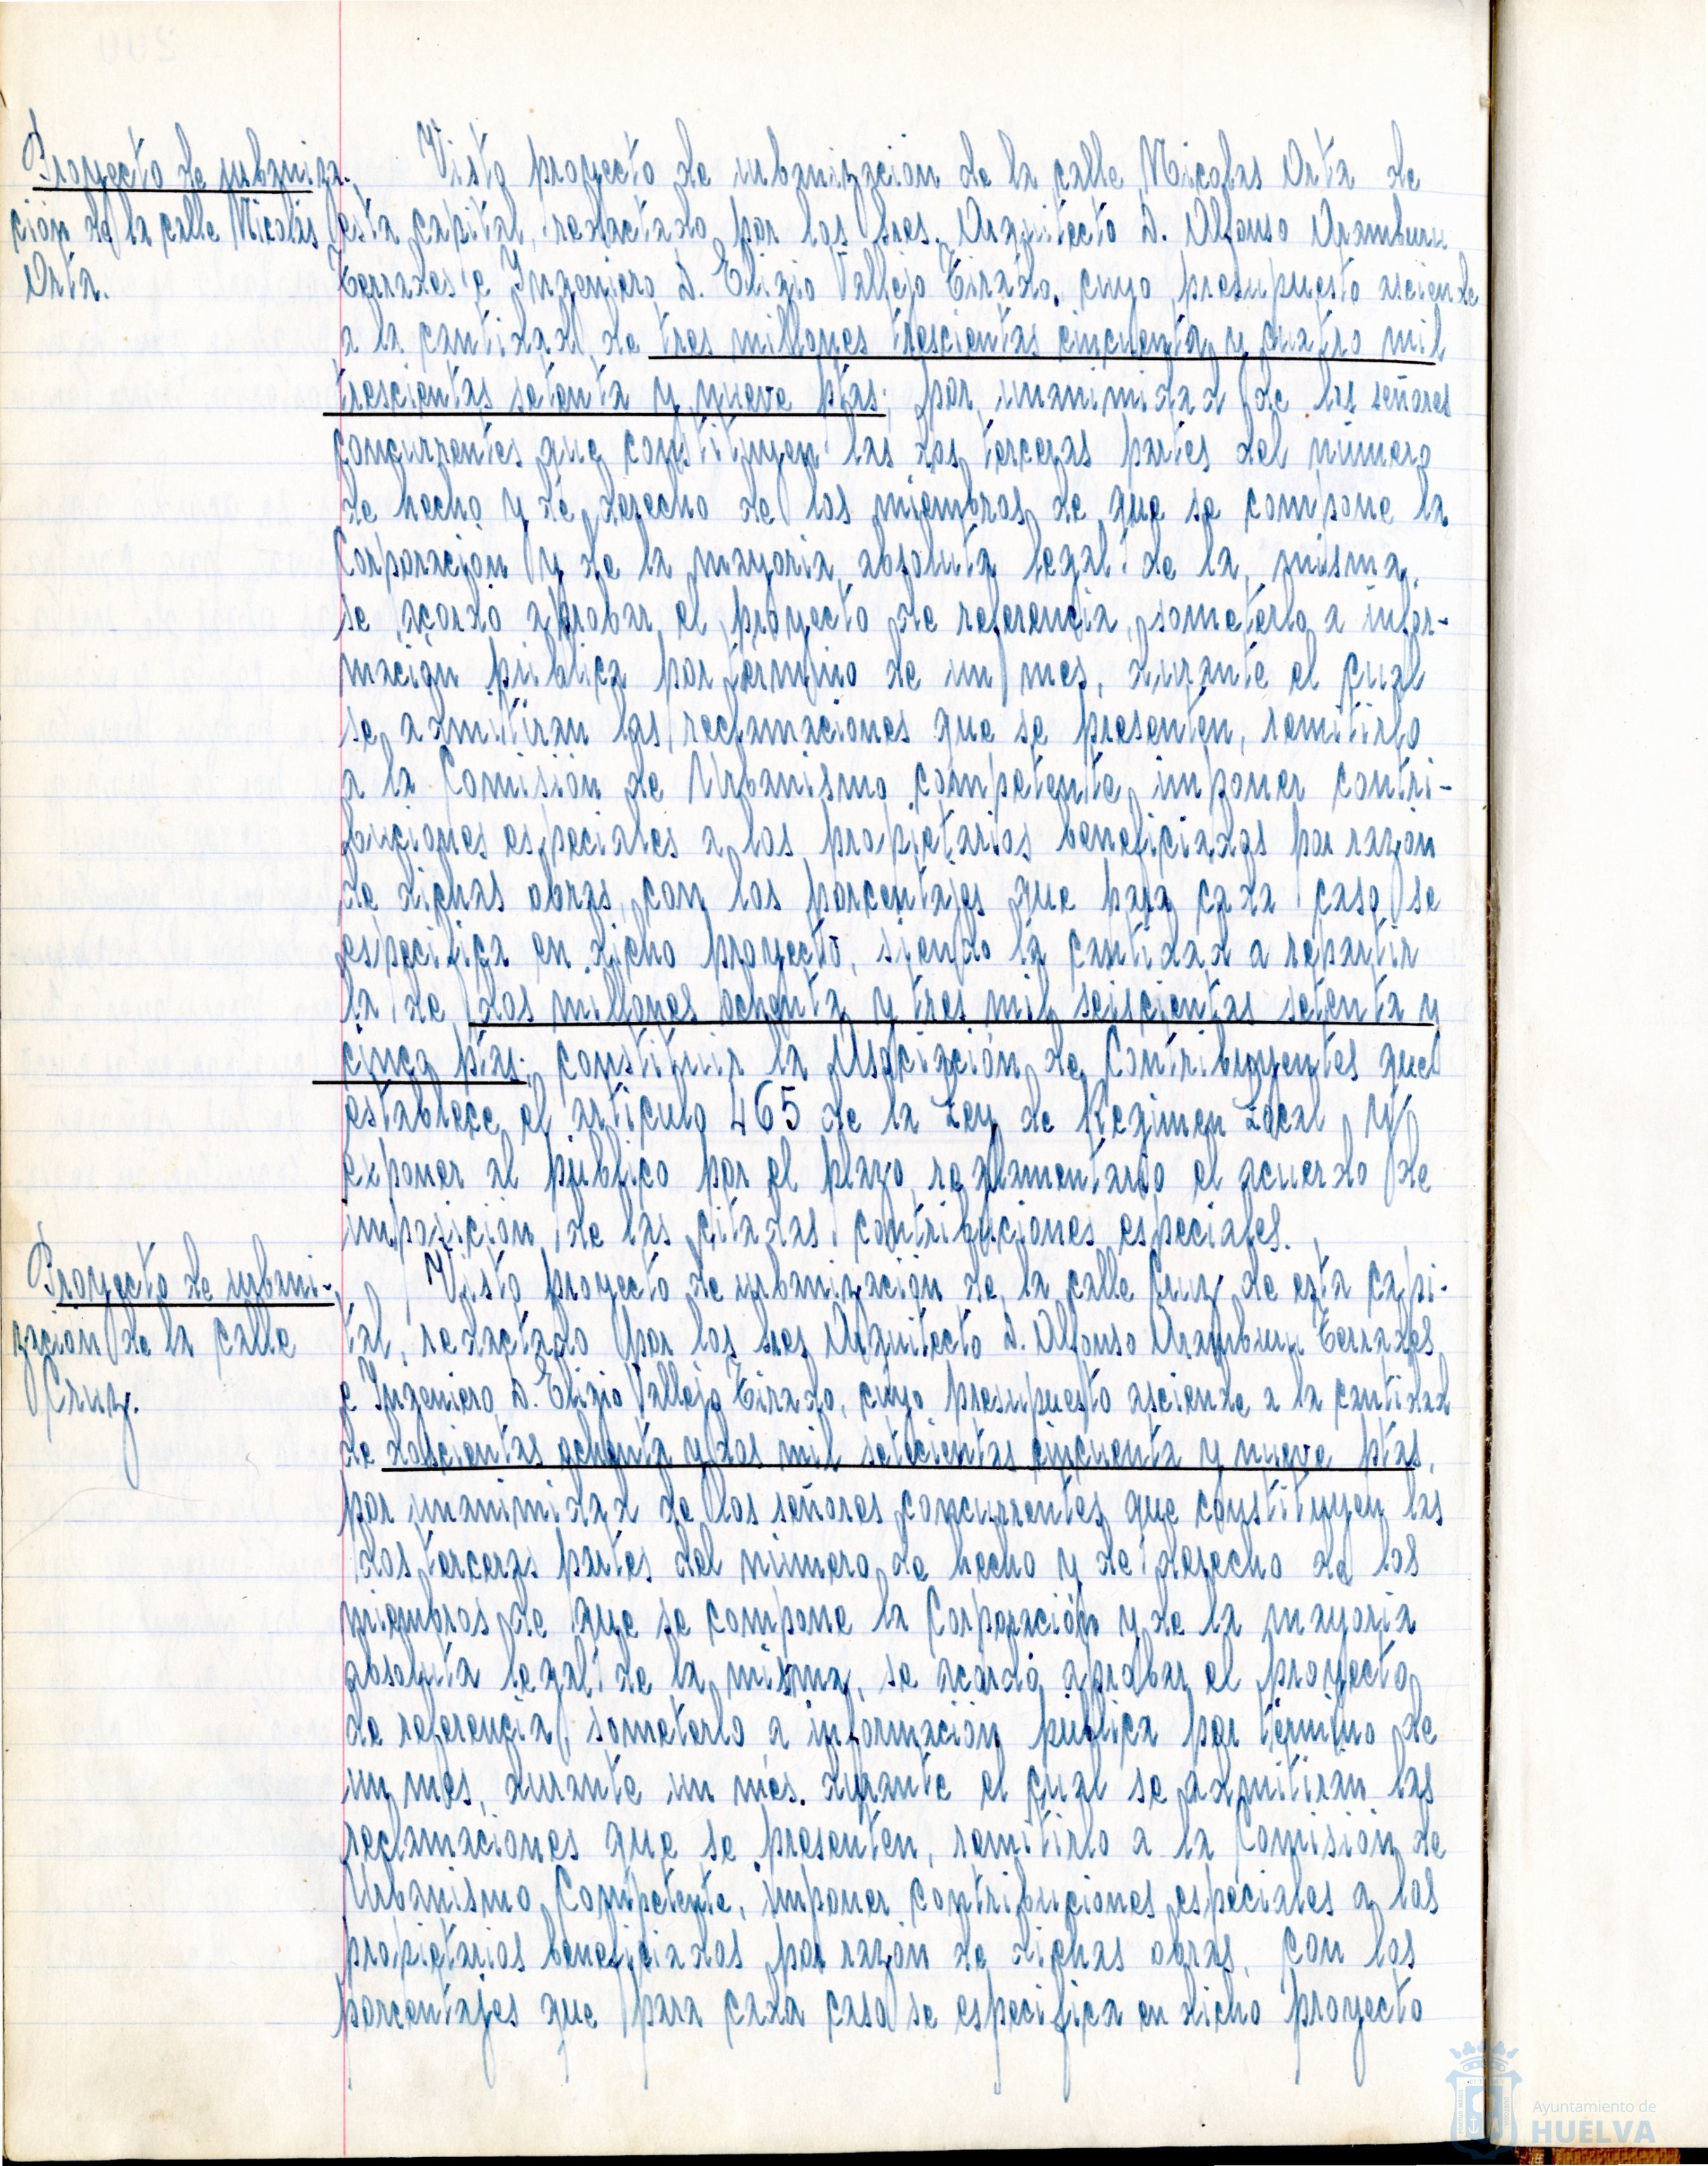 Proyecto de urbaniza-
ción de la calle Nicolás
Orta.
Visto proyecto de urbanización de la calle Nicolas Orta de
esta capital, redactado por los Sres. Arquitecto D. Alfonso Aramburu
Terrades e Ingeniero D. Eligio Vallejo Tirado, cuyo presupuesto asciende
a la cantidad de tres millones trescientas cincuenta y cuatro mil
trescientas setenta y nueve ptas; por unanimidad de los señores
concurrentes que constituyen las dos terceras partes del número
de hecho y de derecho de los miembros de que se compone la
Corporación y de la mayoria absoluta legal de la misma,
se acordó aprobar el proyecto de referencia, someterlo a infor-
mación pública por término de un mes, durante el cual
se admitiran las reclamaciones que se presenten, remitirlo
a la Comisión de Urbanismo competente, imponer contri-
buciones especiales a los propietarios beneficiados por razón
de dichas obras, con los porcentajes que para cada caso se
especifica en dicho proyecto, siendo la cantidad a repartir
la, de dos millones ochenta y tres mil seiscientas setenta y
cinco ptas; constituir la Asociación de Contribuyentes que
establece el artículo 465 de la Ley de Regimen Local y
exponer al público por el plazo reglamentario el acuerdo de
imposición de las citadas contribuciones especiales.
Proyecto de urbani-
zación de la calle
Cruz.
Visto proyecto de urbanización de la calle Cruz de esta capi-
tal, redactado por los Sres Arquitecto D. Alfonso Aramburu Terrades
e Ingeniero D. Eligio Vallejo Tirado, cuyo presupuesto asciende a la cantidad
de doscientas ochenta y dos mil setecientas cincuenta y nueve ptas,
por unanimidad de los señores concurrentes que constituyen las
dos terceras partes del número de hecho y de derecho de los
miembros de que se compone la Corporación y de la mayoria
absoluta legal de la misma, se acordó aprobar el proyecto
de referencia, someterlo a información pública por término de
un mes, durante un mes. durante el cual se admitiran las
reclamaciones que se presenten, remitirlo a la Comisión de
Urbanismo Competente, imponer contribuciones especiales a los
propietarios beneficiados por razón de dichas obras, con los
porcentajes que para cada caso se especifica en dicho proyecto
Ayuntamiento de
HUELVA